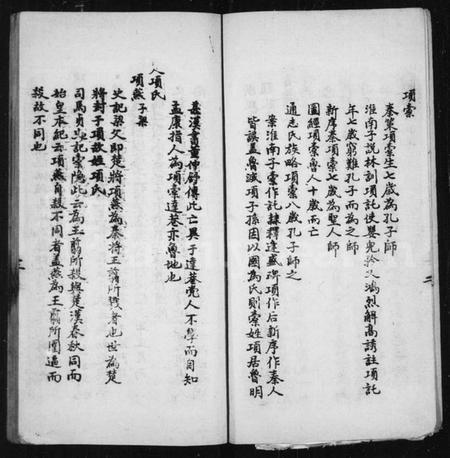 項橐
秦策項橐生七歲為孔子師
淮南子說林剖項託使嬰兒矜
年七歲窮難孔子而為之師
新序秦項橐七歲為聖人師
圖經項橐魯人十歲而亡
通志氏族略項橐八歲孔子師之
案淮南子橐作託隸釋逢盛碑項作后新序作秦人
皆誤蓋魯滅項子孫因以國為氏則橐姓項居魯明
甚漢書董仲舒傳此亡異于達巷黨人不學而自知
孟康指人為項橐達巷亦魯地也
人項氏
項燕子梁
史記梁父即楚將項燕為秦將王翦所戮者也世為楚
將封于項故姓項氏
司馬貞史記索隱此云為王翦所殺與楚漢春秋同而
始皇本紀云項燕自殺不同者蓋燕為王翦所圍逼而
殺故不同也
二